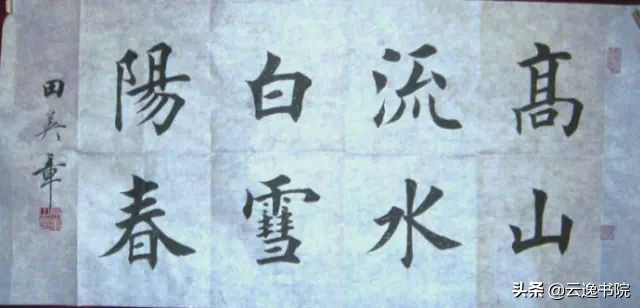 髙山
流水
白雪
陽春
田英章
头条 @云逸书院